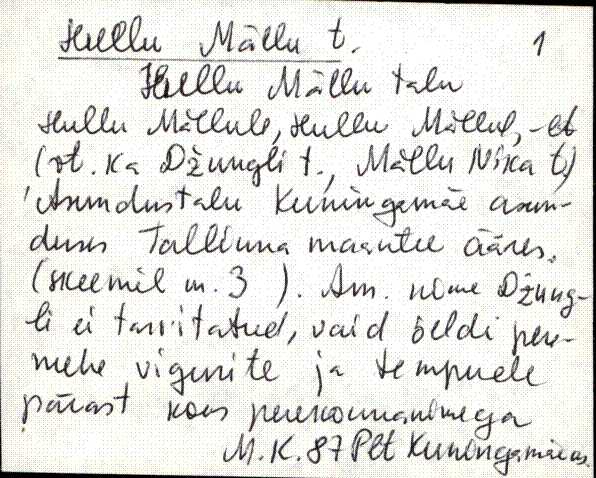 Hullu Mällu t. 1
Hullu Mällu talu
Hullu Mällule, Hullu Mällul, -lt
(vt. ka Džungli t., Mällu Nika t.)
'Asundustalu Kuningamäe asun-
duses Tallinna maantee ääres.
(skeemil nr. 3 ). Am. nime Džung-
li ei tarvitatud, vaid öeldi pere-
mehe vigurite ja tempude
pärast koos perekonnanimega
M.K. 87 Plt Kuningamäe as.